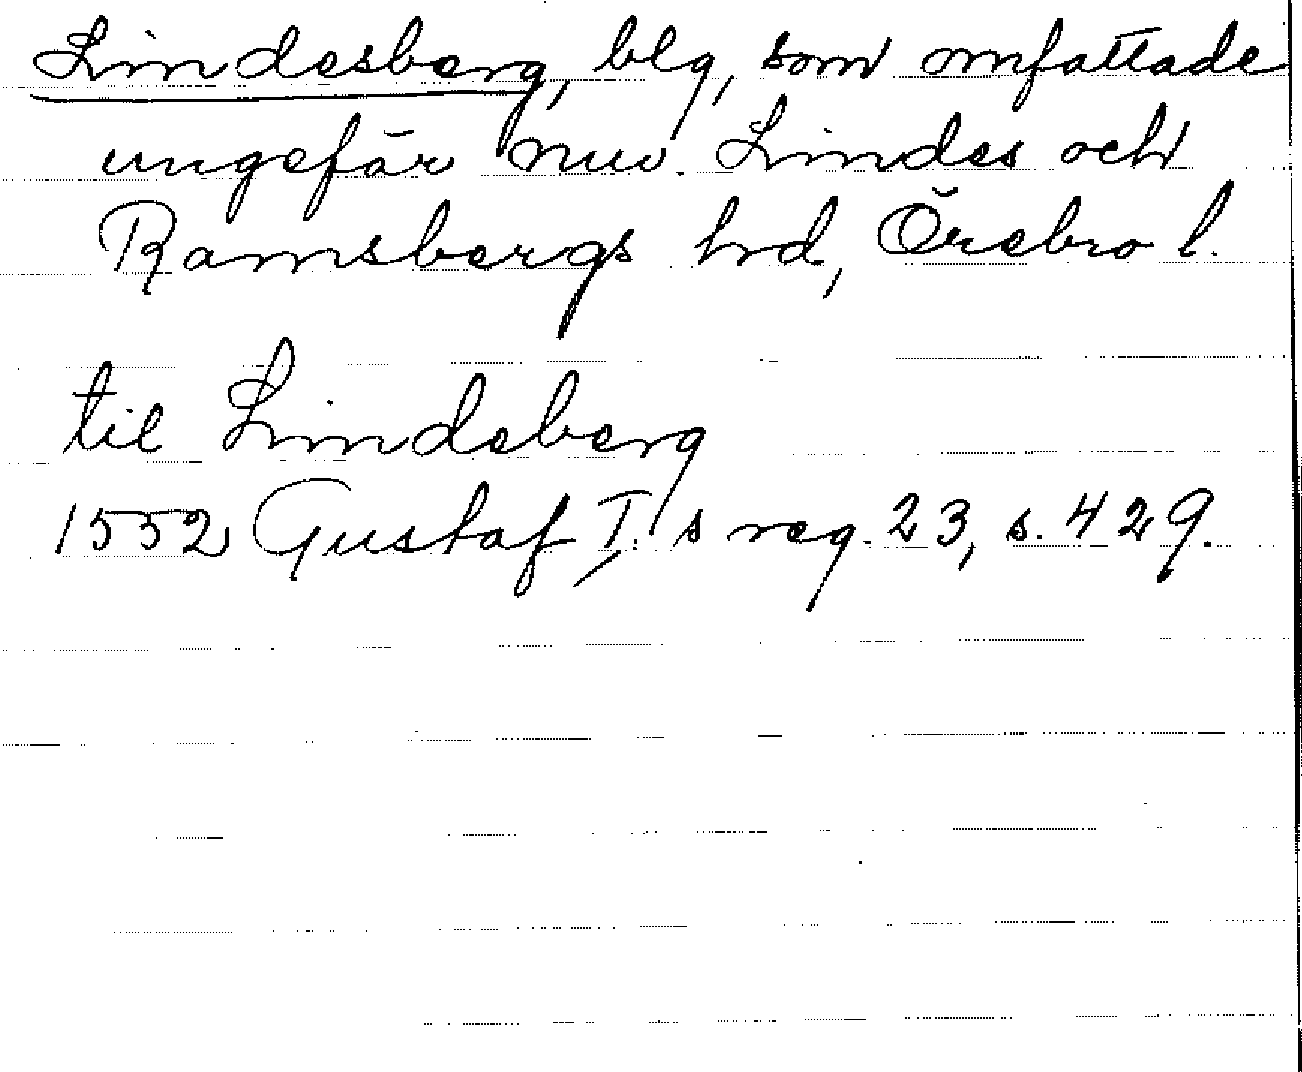 Lindesberg, blg, som omfattade
ungefär nuv. Lindes och
Ramsbergs hrd, Örebro l.
til Lindeberg
1552 Gustaf I:s reg. 23, s. 429.